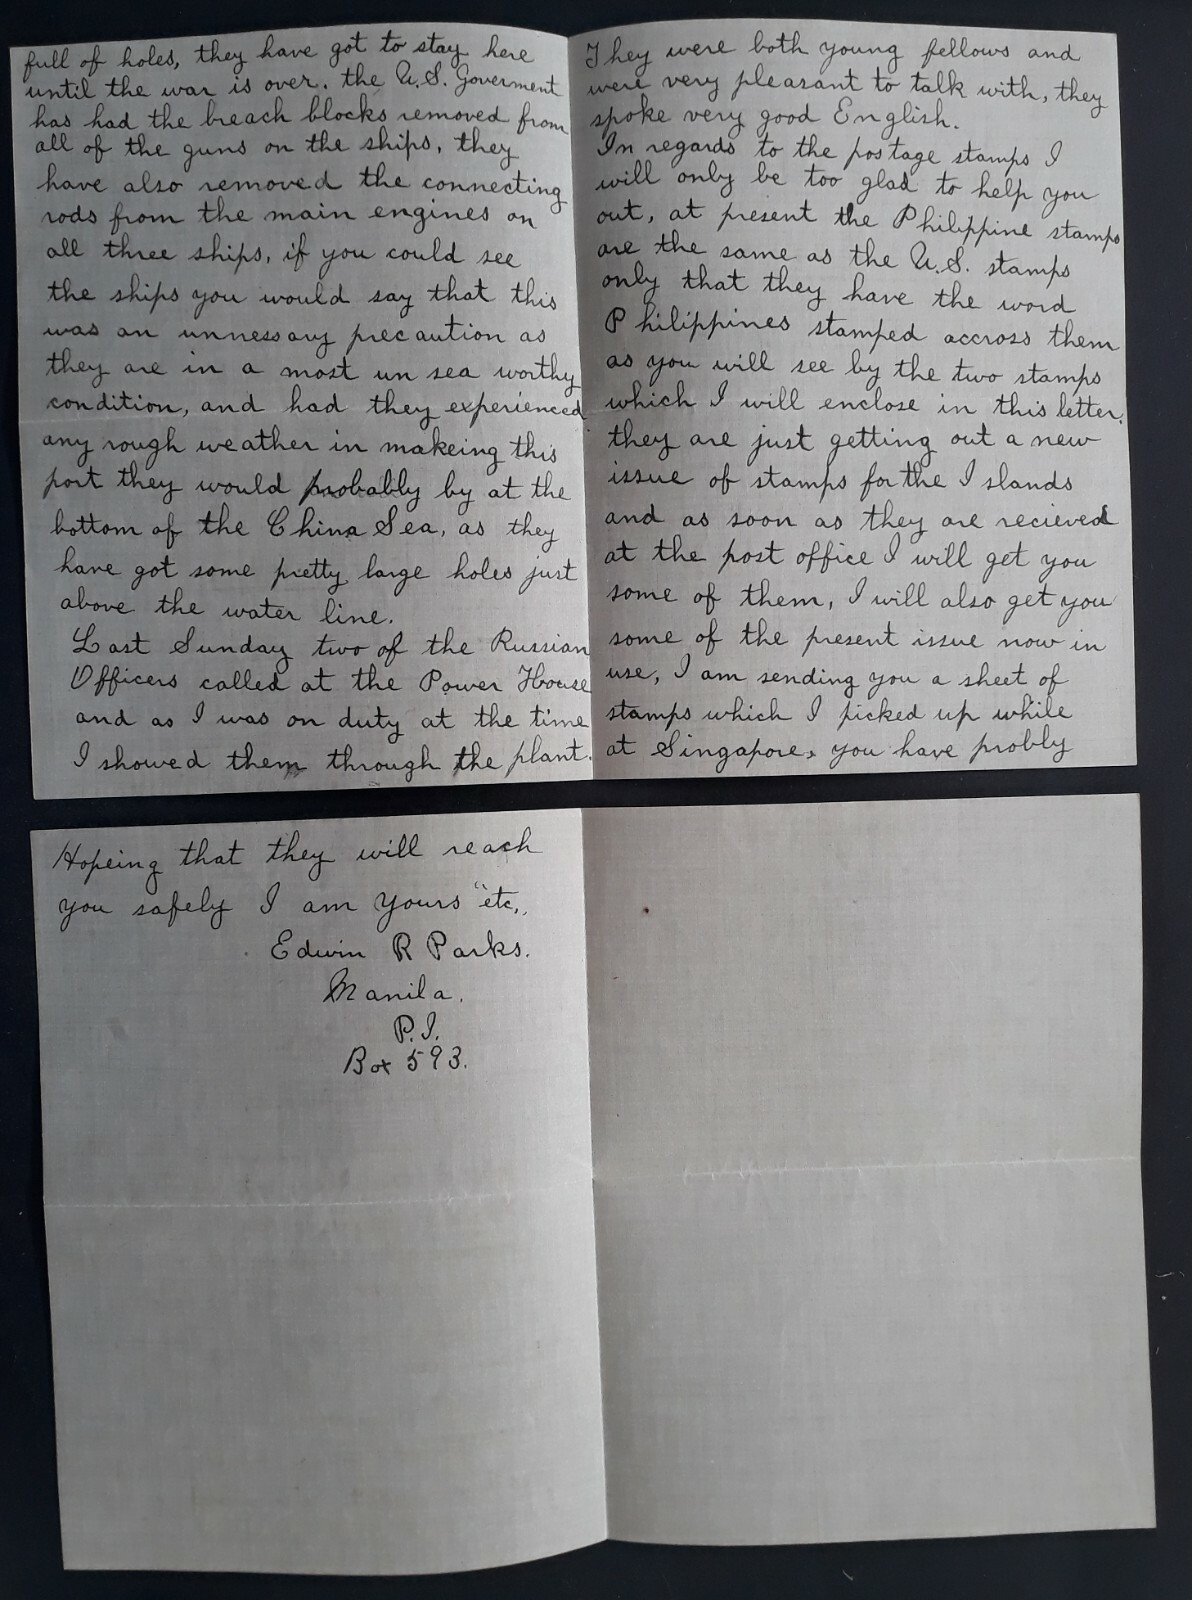 full of holes, they have got to stay here
until the war is over. the U.S. Goverment
has had the breach blocks removed from
all of the guns on the ships, they
have also removed the connecting
rods from the main engines on
all three ships, if you could see
the ships you would say that this
was an unnessary precaution as
they are in a most un sea worthy
condition, and had they experienced
any rough weather in makeing this
port they would probably by at the
bottom of the China Sea, as they
have got some pretty large holes just
above the water line.
Last Sunday two of the Russian
Officers called at the Power House
and as I was on duty at the time
I showed them through the plant.
They were both young fellows and
were very pleasant to talk with, they
spoke very good English.
In regards to the postage stamps I
will only be too glad to help you
out, at present the Philippine stamps
are the same as the U.S. stamps
only that they have the word
Philippines stamped accross them
as you will see by the two stamps
which I will enclose in this letter.
they are just getting out a new
issue of stamps for the Islands
and as soon as they are recieved
at the post office I will get you
some of them, I will also get you
some of the present issue now in
use, I am sending you a sheet of
stamps which I picked up while
at Singapore, you have probly
Hopeing that they will reach
you safely I am Yours "etc,,
Edwin R Parks.
Manila.
P.I.
Box 593.